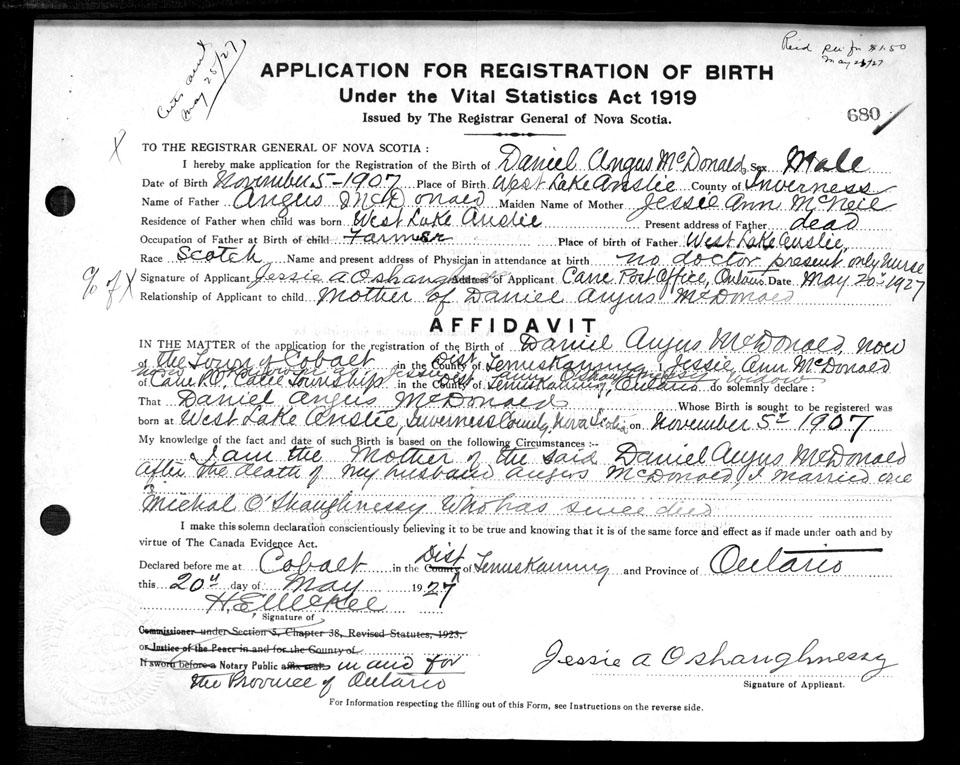 Certs sent
May 25/27
Recd
for $1.50
May 25/27
APPLICATION FOR REGISTRATION OF BIRTH
Under the Vital Statistics Act 1919
Issued by The Registrar General of Nova Scotia.
680
X
TO THE REGISTRAR GENERAL OF NOVA SCOTIA :
I hereby make application for the Registration of the Birth of Daniel Angus McDonald Sex Male
Date of Birth November 5-1907 Place of Birth West Lake Anslie County of Inverness
Name of Father Angus McDonald Maiden Name of Mother Jessie Ann McNeil
Residence of Father when child was born West Lake Anslie Present address of Father dead
Occupation of Father at Birth of child Farmer Place of Birth of Father West Lake Anslie,
Race Scotch Name and present address of Physician in attendance at birth no doctor present only Nurse
% of X Signature of Applicant Jessie A Oshaughnessy Address of Applicant Cane Post Office, Ontario Date May 20th 1927
Relationship of Applicant to child Mother of Daniel Angus McDonald
AFFIDAVIT
IN THE MATTER of the application for the registration of Birth of Daniel Angus McDonald, now
of the Town of Cobalt in the County Dist of Temiskaming, I Jessie Ann McDonald
now known as Jessie Ann Oshaughnessy widow
of Cane P.O, Cane Township in the County Dist of Temiskaming, Ontario do solemnly declare :
That Daniel Angus McDonald Whose Birth is sought to be registered was
born at West Lake Anslie, Inverness County, Nova Scotia on November 5th 1907
My knowledge of the fact and date of such Birth is based on the following Circumstances :-
I am the Mother of the said Daniel Angus McDonald
after the death of my husband Angus McDonald, I married one
Michal O'Shaughnessy Who has since died
I make this solemn declaration conscientiously believing it to be true and knowing that it is of the same force and effect as if made under oath and by
virtue of The Canada Evidence Act.
Declared before me at Cobalt in the County Dist of Temiskaming and Province of Ontario
this 20th day of May 1927
H.E. McKee
Signature of
Commissioner under Section 5, Chapter 38, Revised Statutes, 1923,
or Justice of the Peace in and for the County of
If sworn before a Notary Public affix seal. in and for
the Province of Ontario
Jessie A Oshaughnessy
Signature of Applicant.
For Information respecting the filling out of this Form, see Instructions on the reverse side.